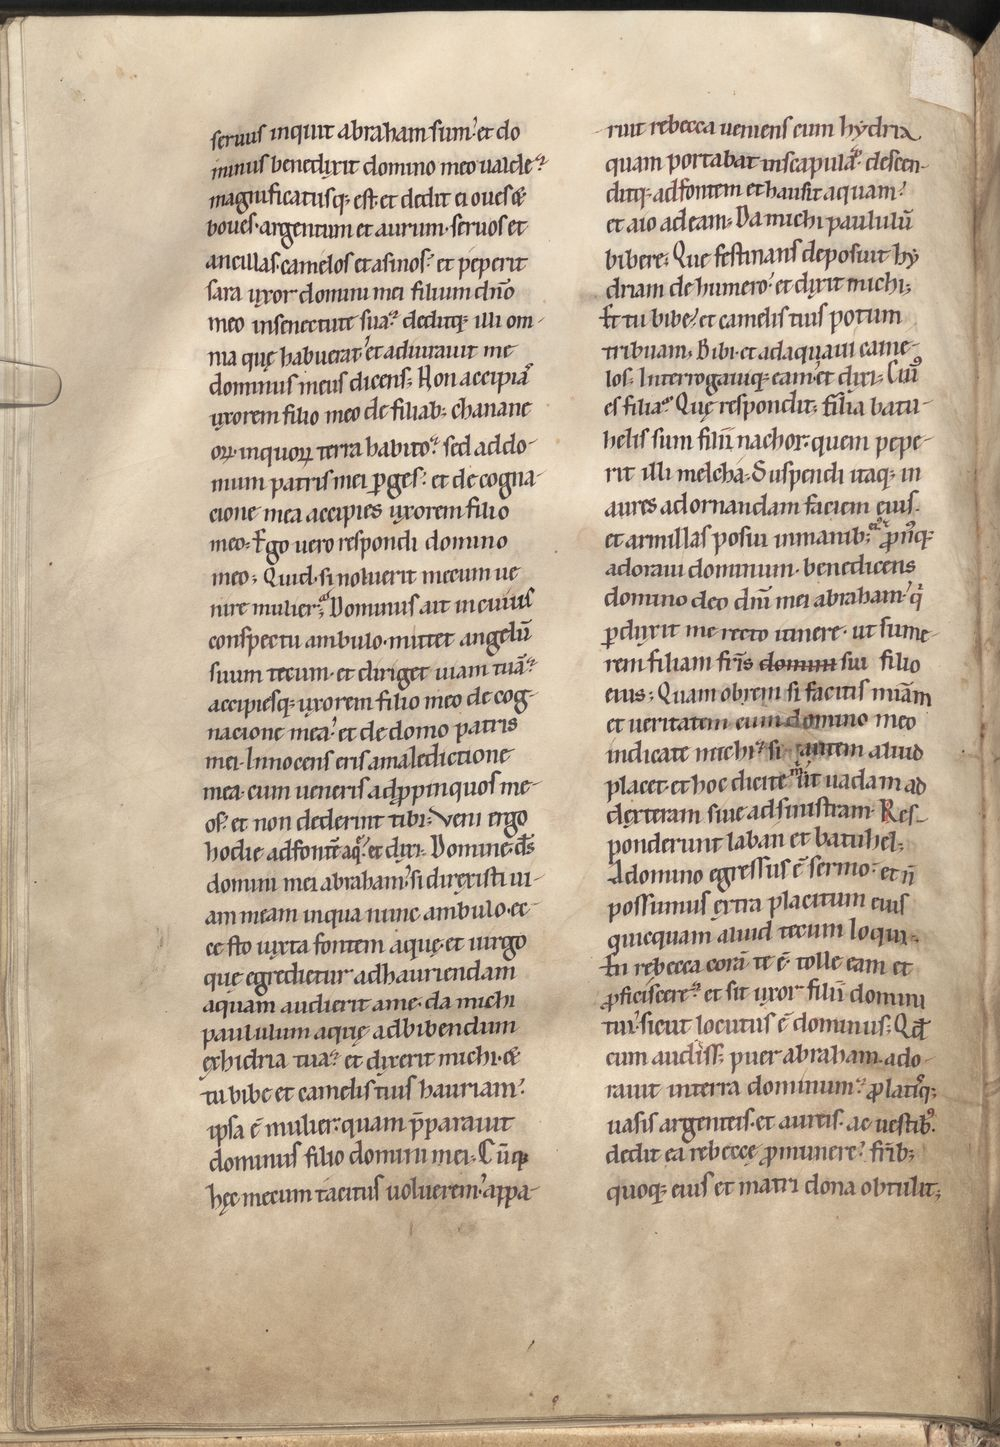 seruus inquit abraham sum. et do
minus benedixit domino meo ualde.
magnificatusq; est. et dedit ei oues &
boues. argentum et aurum. seruos et
ancillas. camelos et asinos. et peperit
sara uxor domini mei filium dn̄o
meo insenectute sua. deditq; illi om-
nia quę habuerat. et adiurauit me
dominus meus dicens; Non accipiā
uxorem filio meo de filiab; chanane
oꝝ. inquoꝝ terra habito. sed addo-
mum patris mei ꝑges. et de cogna-
cione mea accipies uxorem filio
meo; Ego uero respondi domino
meo; Quid. si noluerit mecum ue
nire mulier; Dominus ait incuius
conspectu ambulo. mittet angelū
suum tecum. et diriget uiam tuā.
accipiesq; uxorem filio meo de cog-
nacione mea. et de domo patris
mei. Innocens eris amaledictione
mea. cum ueneris adꝓpinquos me-
os. et non dederint tibi; Veni ergo
hodie adfontē aq̄. et dixi; Domine ds̄
domini mei abraham. si direxisti ui-
am meam inqua nunc ambulo. ec-
ce sto iuxta fontem aquę. et uirgo
quę egredietur adhauriendam
aquam audierit ame. da michi
paululum aquę adbibendum
exhidria tua. et dixerit michi. &
tu bibe et camelis tuis hauriam.
ipsa ē mulier. quam p̄parauit
dominus filio domini mei; Cūq;
hęc mecum tacitus uoluerem. appa-
ruit rebecca ueniens cum hydria
quam portabat inscapula. descen-
ditq; adfontem et hausit aquam.
et aio adeam; Da michi paululū
bibere; Que festinans deposuit hy
driam de humero. et dixit michi;
Et tu bibe. et camelis tuis potum
tribuam; Bibi. et adaquaui came-
los; Interrogauiq; eam. et dixi; Cui᷒
es filia. Quę respondit; filia batu-
helis sum filii nachor. quem pepe-
rit illi melcha; Suspendi itaq; in
aures adornandam faciem eius.
et armillas posui inmanib; ei᷒. ꝓn᷒q;
adoraui dominum. benedicens
domino deo dn̄i mei abraham. q̇
ꝑduxit me recto itinere. ut sume-
rem filiam fr̄is domini sui filio
eius; Quam obrem si facitis miām
et ueritatem cum domino meo
indicate michi. si autem aliud
placet. et hoc dicite m̍. ut uadam ad
dexteram siue adsinistram. Res-
ponderunt laban et batuhel;
Adomino egressus ē sermo. et n̄
possumus extra placitum eius
quicquam aliud tecum loqui.
En rebecca corā te ē. tolle eam et
ꝓficiscere. et sit uxor filii domini
tui. sicut locutus ē dominus; Qd̄
cum audiss; puer abraham. ado-
rauit interra dominum. ꝓlatisq;
uasis argenteis. et aureis. ac uestib᷒.
dedit ea rebeccę ꝓmunere. fr̄ib;
quoq; eius et matri dona obtulit;